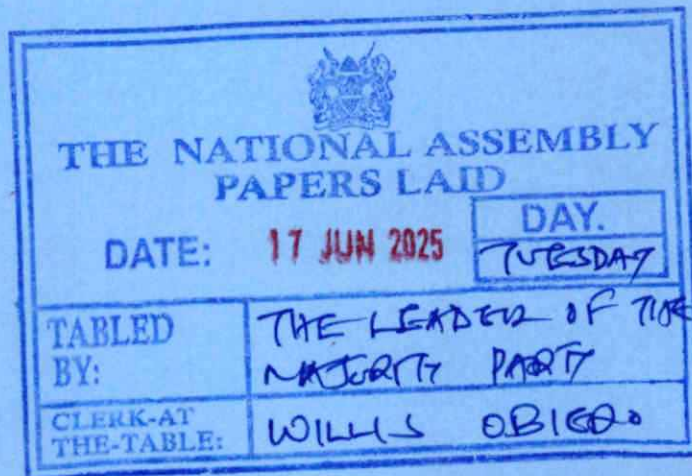 THE NATIONAL ASSEMBLY
PAPERS LAID
DATE: 17 JUN 2025
DAY.
TUESDAY
TABLED
BY:
THE LEADER OF THE
MAJORITY PARTY
CLERK-AT
THE-TABLE:
WILLIS OBIERO